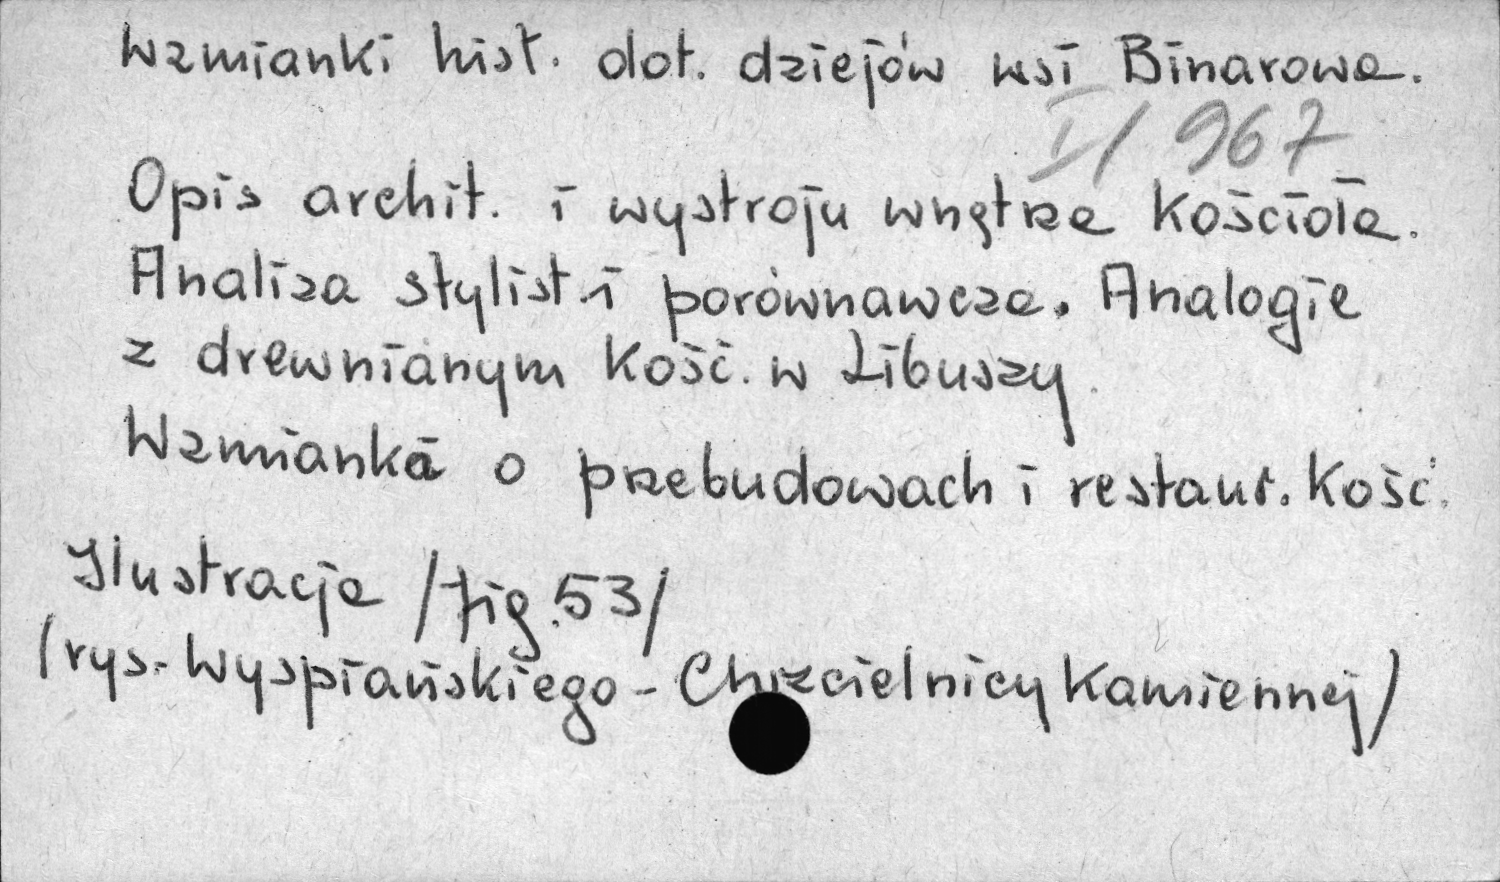 Wzmianki hist. dot. dziejów wsi Binarowa.
I/967
Opis archit. i wystroju wnętrza kościoła.
Analiza stylist. i porównawcza. Analogie
z drewnianym kość. w Libuszy.
Wzmianka o przebudowach i restaur. kość.
Ilustracja /fig. 53/
(rys. Wyspiańskiego - Chrzcielnicy kamiennej)